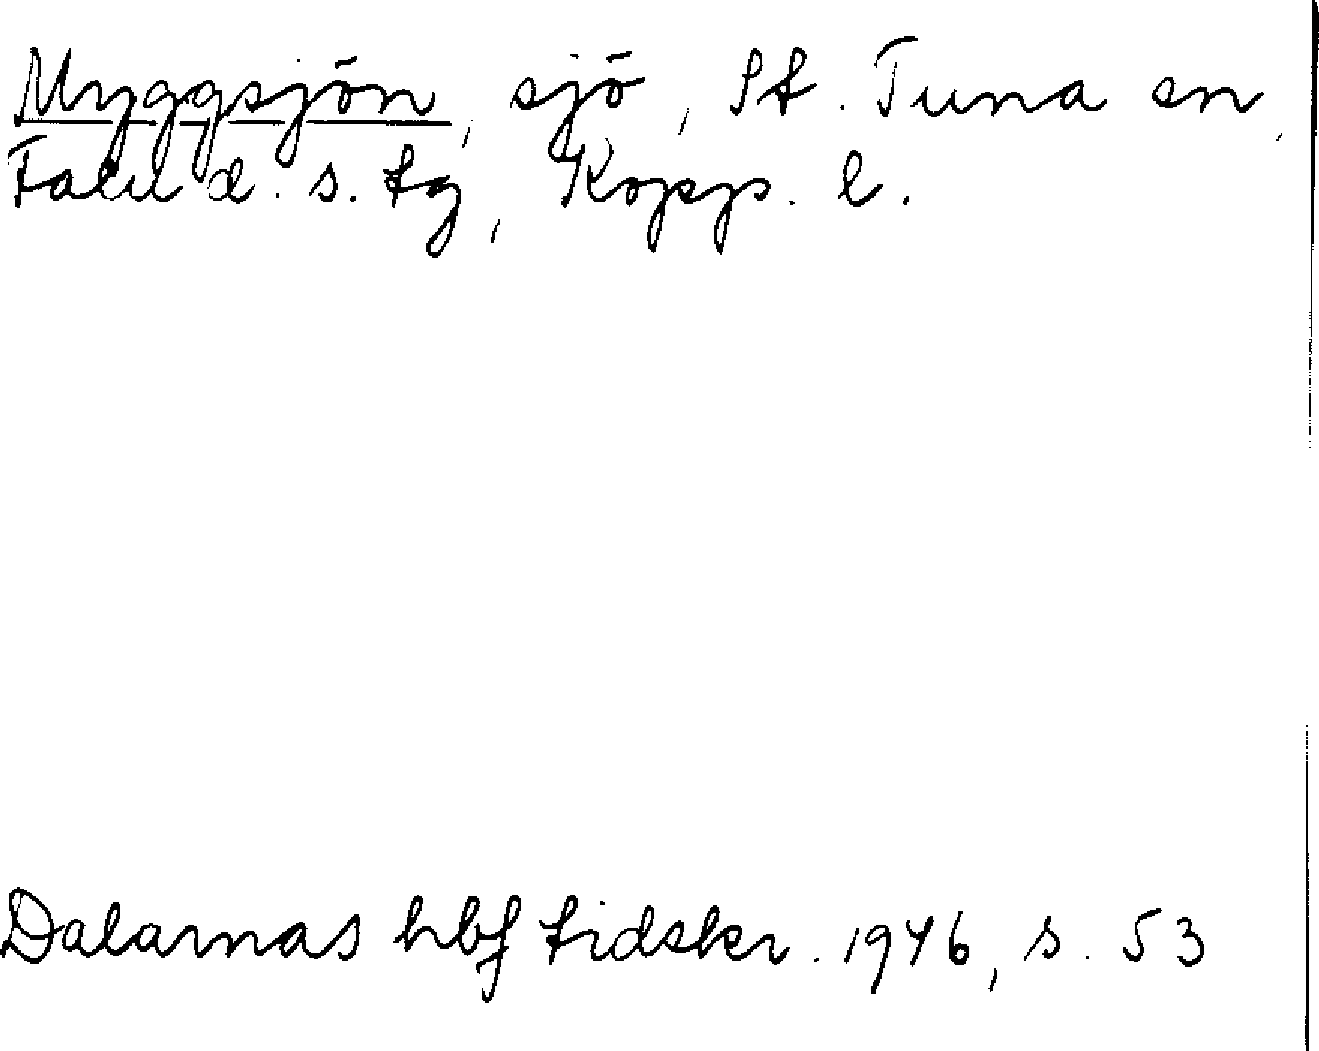 Myggsjön, sjö, St. Tuna sn,
Falu d. s. tg, Kopp. l.
Dalarnas hbf tidskr. 1946, s. 53